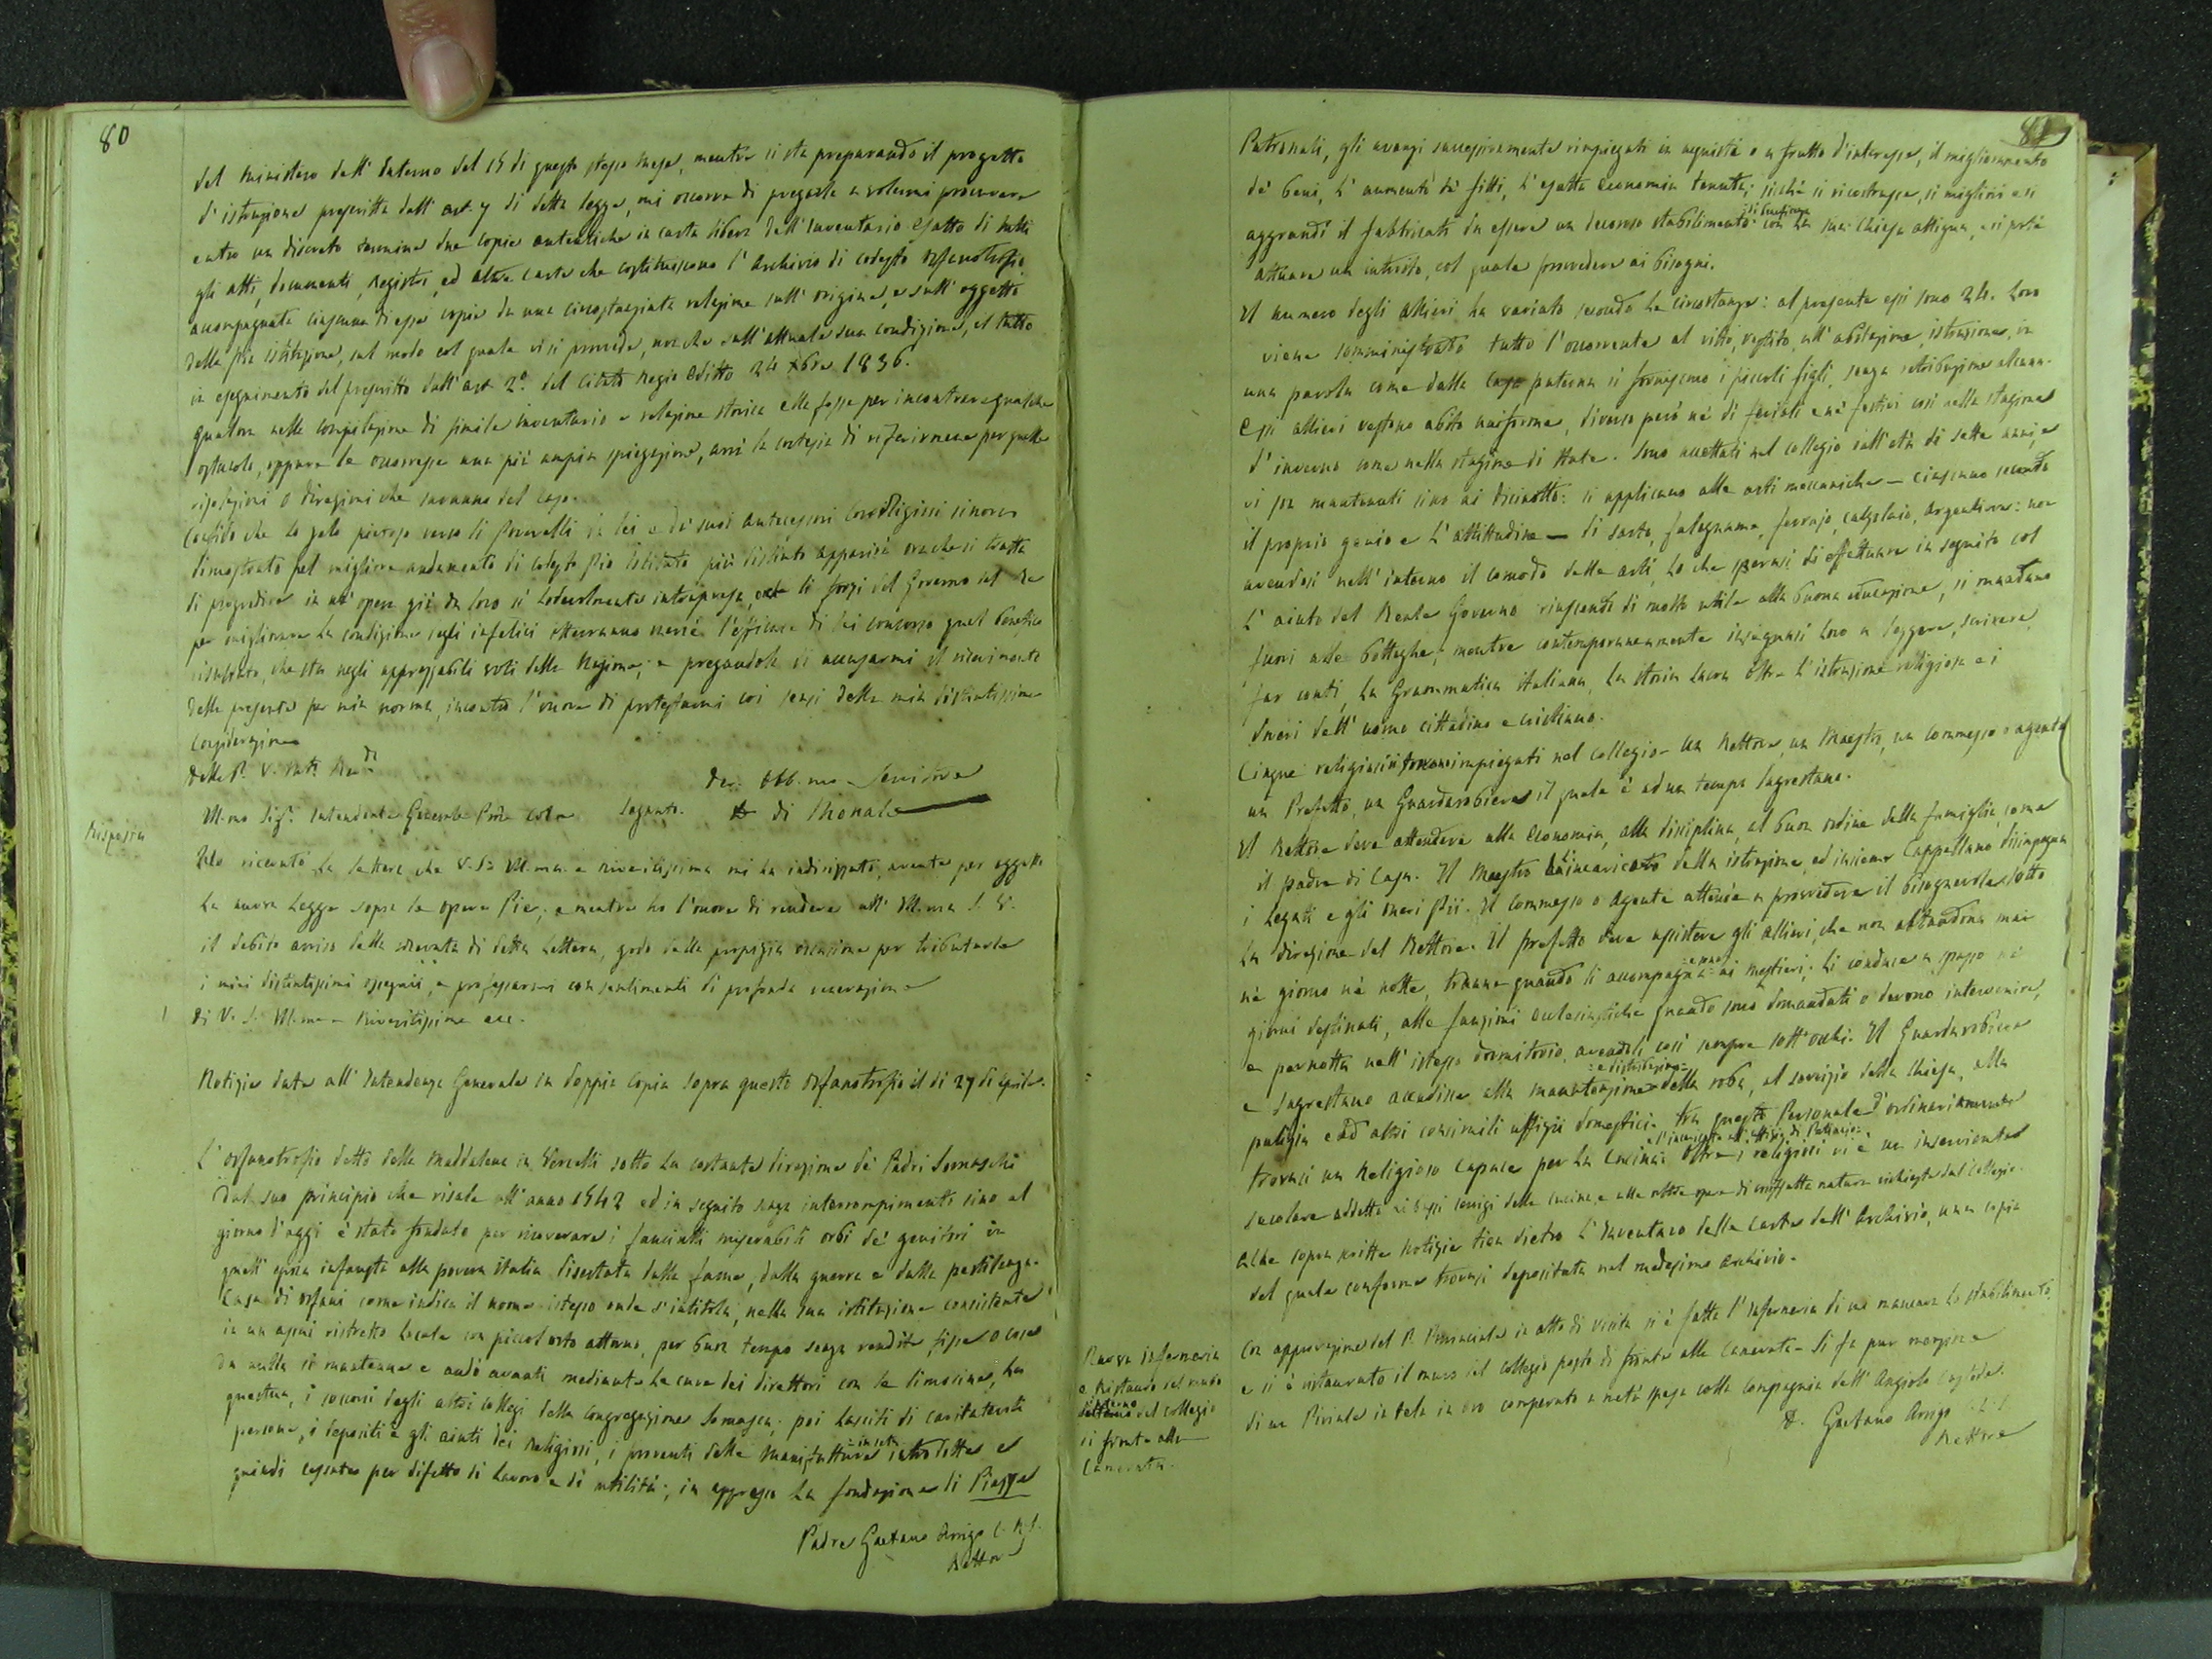 80
del ministero dell' Interno del 15 di questo stesso mese, mentre si sta preparando il progetto
d'istruzione prescritta dall' art. 7 di detta legge, mi occorre di pregarla a volermi procurare
entro un discreto termine due copie autentiche in carta libera dell'inventario esatto di tutti
gli atti, documenti, registri, ed altre carte che costituiscono l'Archivio di codesto Orfanotrofio
accompagnata ciascuna di esse copie da una circostanziata relazione sull' origine, e sull' oggetto
della pia istituzione, sul modo col quale vi si provvede, non che sull'attuale sua condizione, il tutto
in eseguimento del prescritto dall' art. 2º. del citato Regio Editto 24 Xbre 1836.
Qualora nella compilazione di simile inventario e relazione storica ella fosse per incontrare qualche
ostacolo, oppure le occorresse una più ampia spiegazione, avrà la cortesia di riferirmene per quelle
disposizioni o direzioni che saranno del caso.
Confido che lo zelo pietoso verso li Poverelli in lei e de' suoi antecessori Correligiosi sinora
dimostrato pel migliore andamento di codesto Pio Istituto più distinto apparirà ora che si tratta
di progredire in un' opera già da loro sì lodevolmente intrapresa, li sforzi del Governo del Re
per migliorare la condizione degli infelici otterranno mercé l'efficace di lei concorso quel benefico
risultato, che sta negli apprezzabili voti della Nazione; e pregandola di accusarmi il ricevimento
della presente per mia norma, incontro l'onore di protestarmi coi sensi della mia distintissima
considerazione
Della P. V. M.to Rev.da
Dev. Obb.mo Servitore
Ill.mo Sig.r Intendente Generale Segnato. di Monale
Risposta
Ho ricevuto la lettera che V. S. Ill.ma e Riveritissima mi ha indirizzato, avente per oggetto
la nuova legge sopra le opere Pie; e mentre ho l'onore di rendere all' Ill.ma S. V.
il debito avviso della ricevuta di detta lettera, godo della propizia occasione per tributarle
i miei distintissimi ossequii, e professarmi con sentimenti di profonda venerazione
Di V. S. Ill.ma e Riveritissima ecc.
Notizie date all' Intendenza Generale in doppia copia sopra questo Orfanotrofio il dì 27 di Aprile.
L'orfanotrofio detto della Maddalena in Vercelli sotto la costante direzione de' Padri Somaschi
dal suo principio che risale all' anno 1542 ed in seguito senza interrompimento sino al
giorno d'oggi è stato fondato per ricoverare i fanciulli miserabili orbi de' genitori in
quell' epoca infausta alla povera Italia disertata dalla fame, dalla guerra e dalla pestilenza.
Casa di orfani come indica il nome istesso onde s'intitola, nella sua istituzione consistente
in un assai ristretto locale con piccol orto attorno, per buon tempo senza rendite fisse o cose
da nulla si mantenne e andò avanti mediante le cure dei direttori con le limosine, la
questua, i soccorsi degli altri collegi della Congregazione Somasca; poi lasciti di caritatevoli
persone, i depositi e gli aiuti dei Religiosi, i proventi delle manifatture :in seta: introdotte e
quindi cessate per difetto di lavoro e di utilità; in appresso la fondazione di Piazze
Padre Gaetano Arrigo C.R.S.
Rettore
81
Patronali, gli avanzi successivamente rimpiegati in acquisti o a frutto d'interesse, il miglioramento
de' beni, l'aumento de' fitti, l'esatta economia tenuta; sicché si ricostrusse, si migliorò e si
aggrandì il fabbricato da essere un decoroso stabilimento con la sua Chiesa attigua, e si potè
attuare un introito, col quale provvedere ai bisogni.
Il numero degli allievi ha variato secondo le circostanze: al presente essi sono 24. Loro
viene somministrato tutto l'occorrente al vitto, vestito, all' abitazione, istruzione, in
una parola come dalla casa paterna si forniscono i piccoli figli, senza retribuzione alcuna.
Essi allievi vestono abito uniforme, diverso però ne' dì feriali e ne' festivi così nella stagione
d'inverno come nella stagione di state. Sono accettati nel collegio dall'età di sette anni, e
vi son mantenuti sino ai diciotto: si applicano alle arti meccaniche — ciascuno secondo
il proprio genio e l'attitudine — di sarto, falegname, ferrajo, calzolaio, argentiere: non
avendosi nell' interno il comodo delle arti, lo che sperasi di effettuare in seguito col
l'aiuto del Reale Governo riuscendo di molto utile alla buona educazione, si mandano
fuori alle botteghe; mentre contemporaneamente insegnasi loro a leggere, scrivere,
far conti, la Grammatica italiana, la storia sacra oltre l'istruzione religiosa e i
doveri dell' uomo cittadino e cristiano.
Cinque religiosi impiegati nel collegio — un Rettore, un Maestro, un commesso o agente
un Prefetto, un Guardarobiere il quale è ad un tempo Sagrestano.
Il Rettore deve attendere alla economia, alla disciplina, al buon ordine della famiglia, come
il padre di casa. Il Maestro è incaricato della istruzione, ed insieme Cappellano disimpegna
i legati e gli oneri pii. Il commesso o Agente attende a provvedere il bisognevole sotto
la direzione del Rettore. Il prefetto deve assistere gli allievi, che non abbandona mai
nè giorno nè notte, tranne quando li accompagna ai mestieri; li conduce a spasso nei
giorni destinati, alle funzioni ecclesiastiche quando sono domandati o devono intervenire,
e pernotta nell' istesso dormitorio, avendoli così sempre sott'occhi. Il Guardarobiere
e sagrestano accudisce alla manutenzione :e distribuzione: della roba, al servizio della Chiesa, alla
pulizia e ad altri consimili uffizii domestici. Tra questo Personale d'ordinario
trovasi un Religioso capace per la cucina: Oltre i religiosi vi è un inserviente
secolare addetto ai bassi servigi della cucina e alle altre opere di siffatta natura richieste dal Collegio.
Alle sopra scritte Notizie tien dietro l'Inventaro delle carte dell' Archivio, una copia
del quale conforme trovasi depositata nel medesimo archivio.
Nuova Infermeria
e Ristauro del muro
interno del collegio
di fronte alla
Camerata.
Con approvazione del P. Provinciale in atto di visita si è fatta l'Infermeria di cui mancava lo stabilimento,
e si è ristaurato il muro del collegio posto di fronte alla Camerata. Si fa pur menzione
di un Piviale in tela in oro comperato a metà spesa colla Compagnia dell' Angiolo Custode.
D. Gaetano Arrigo C.R.S.
Rettore